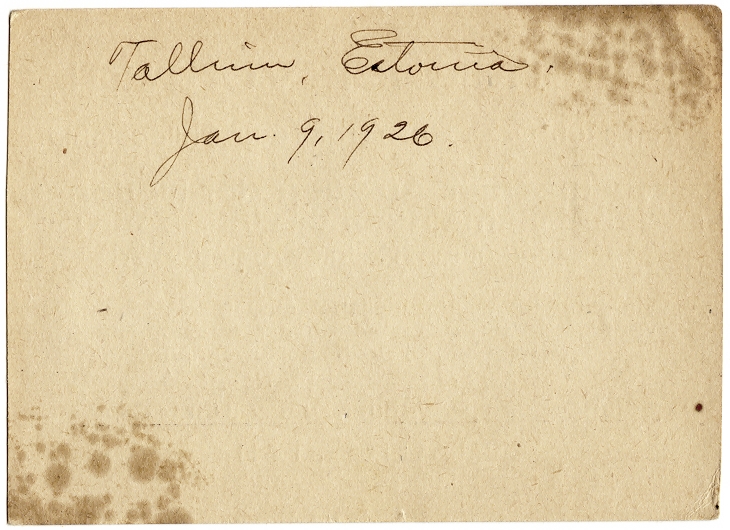 Tallinn, Estonia.
Jan. 9, 1926.